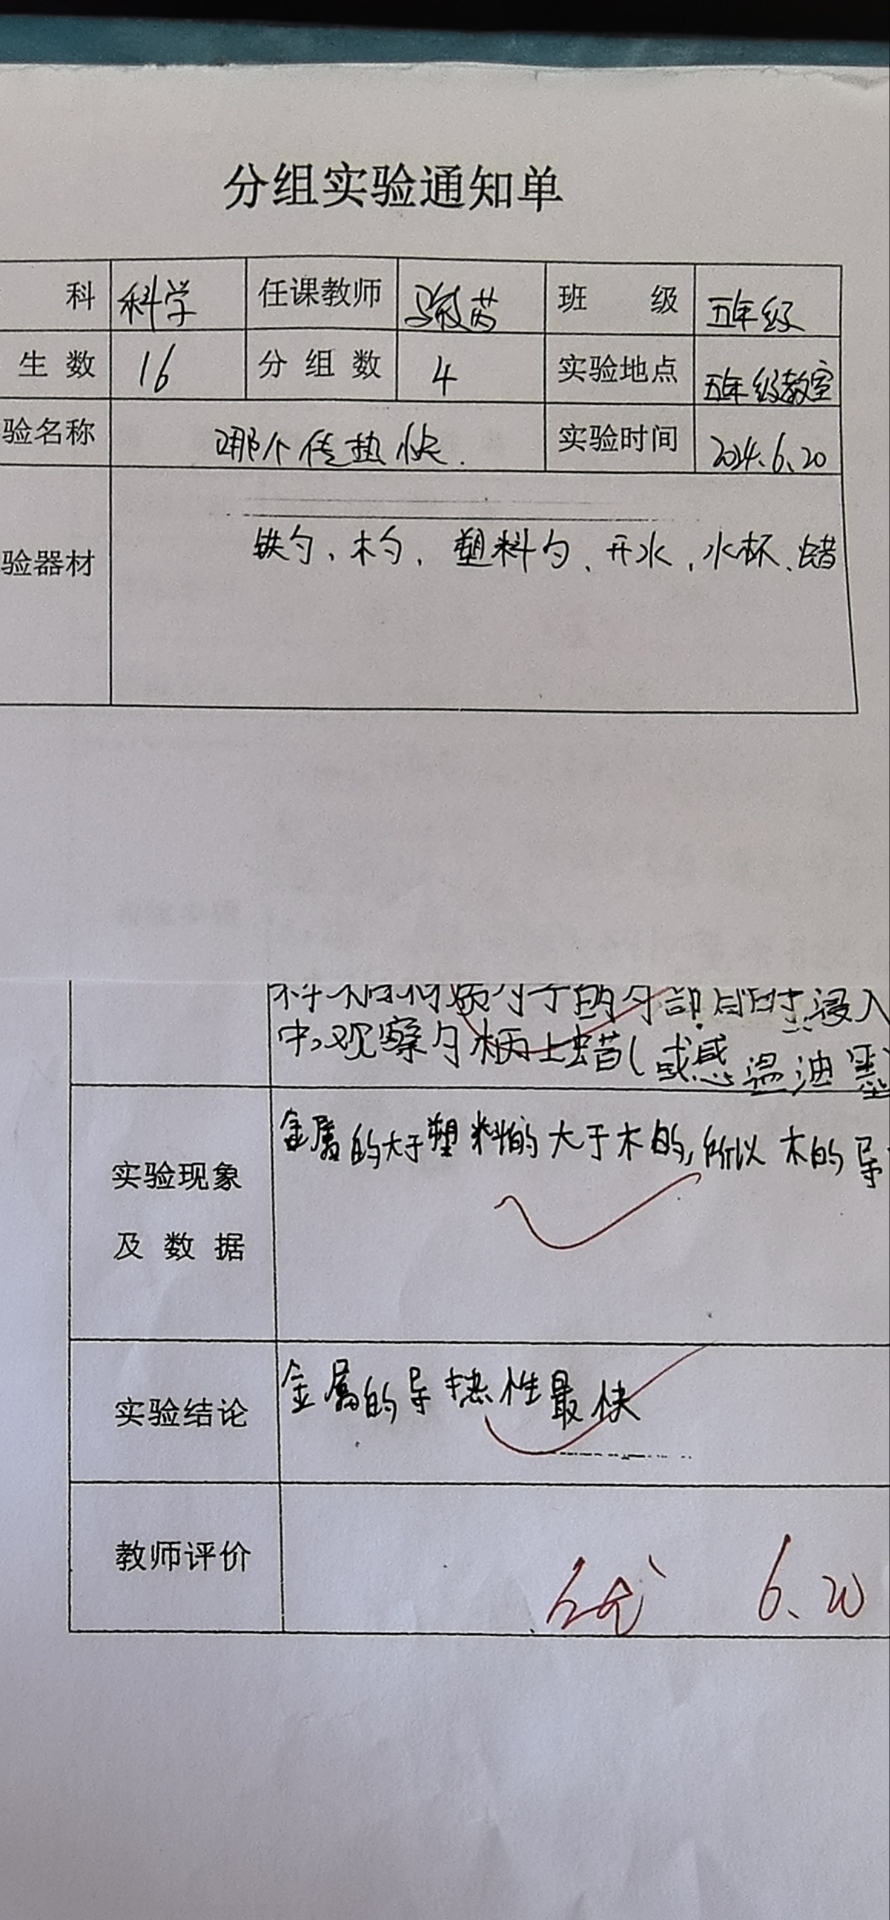 分组实验通知单
科 科学 任课教师 班 级 五年级
生 数 16 分 组 数 4 实验地点 五年级教室
验名称 哪个传热快. 实验时间 2024.6.20
验器材 铁勺、木勺、塑料勺、开水、水杯、蜡
浸入
中,观察勺柄上蜡(或感温油墨
实验现象
及 数 据
金属的大于塑料的大于木的,所以木的导
实验结论 金属的导热性最快
教师评价 优 6.20